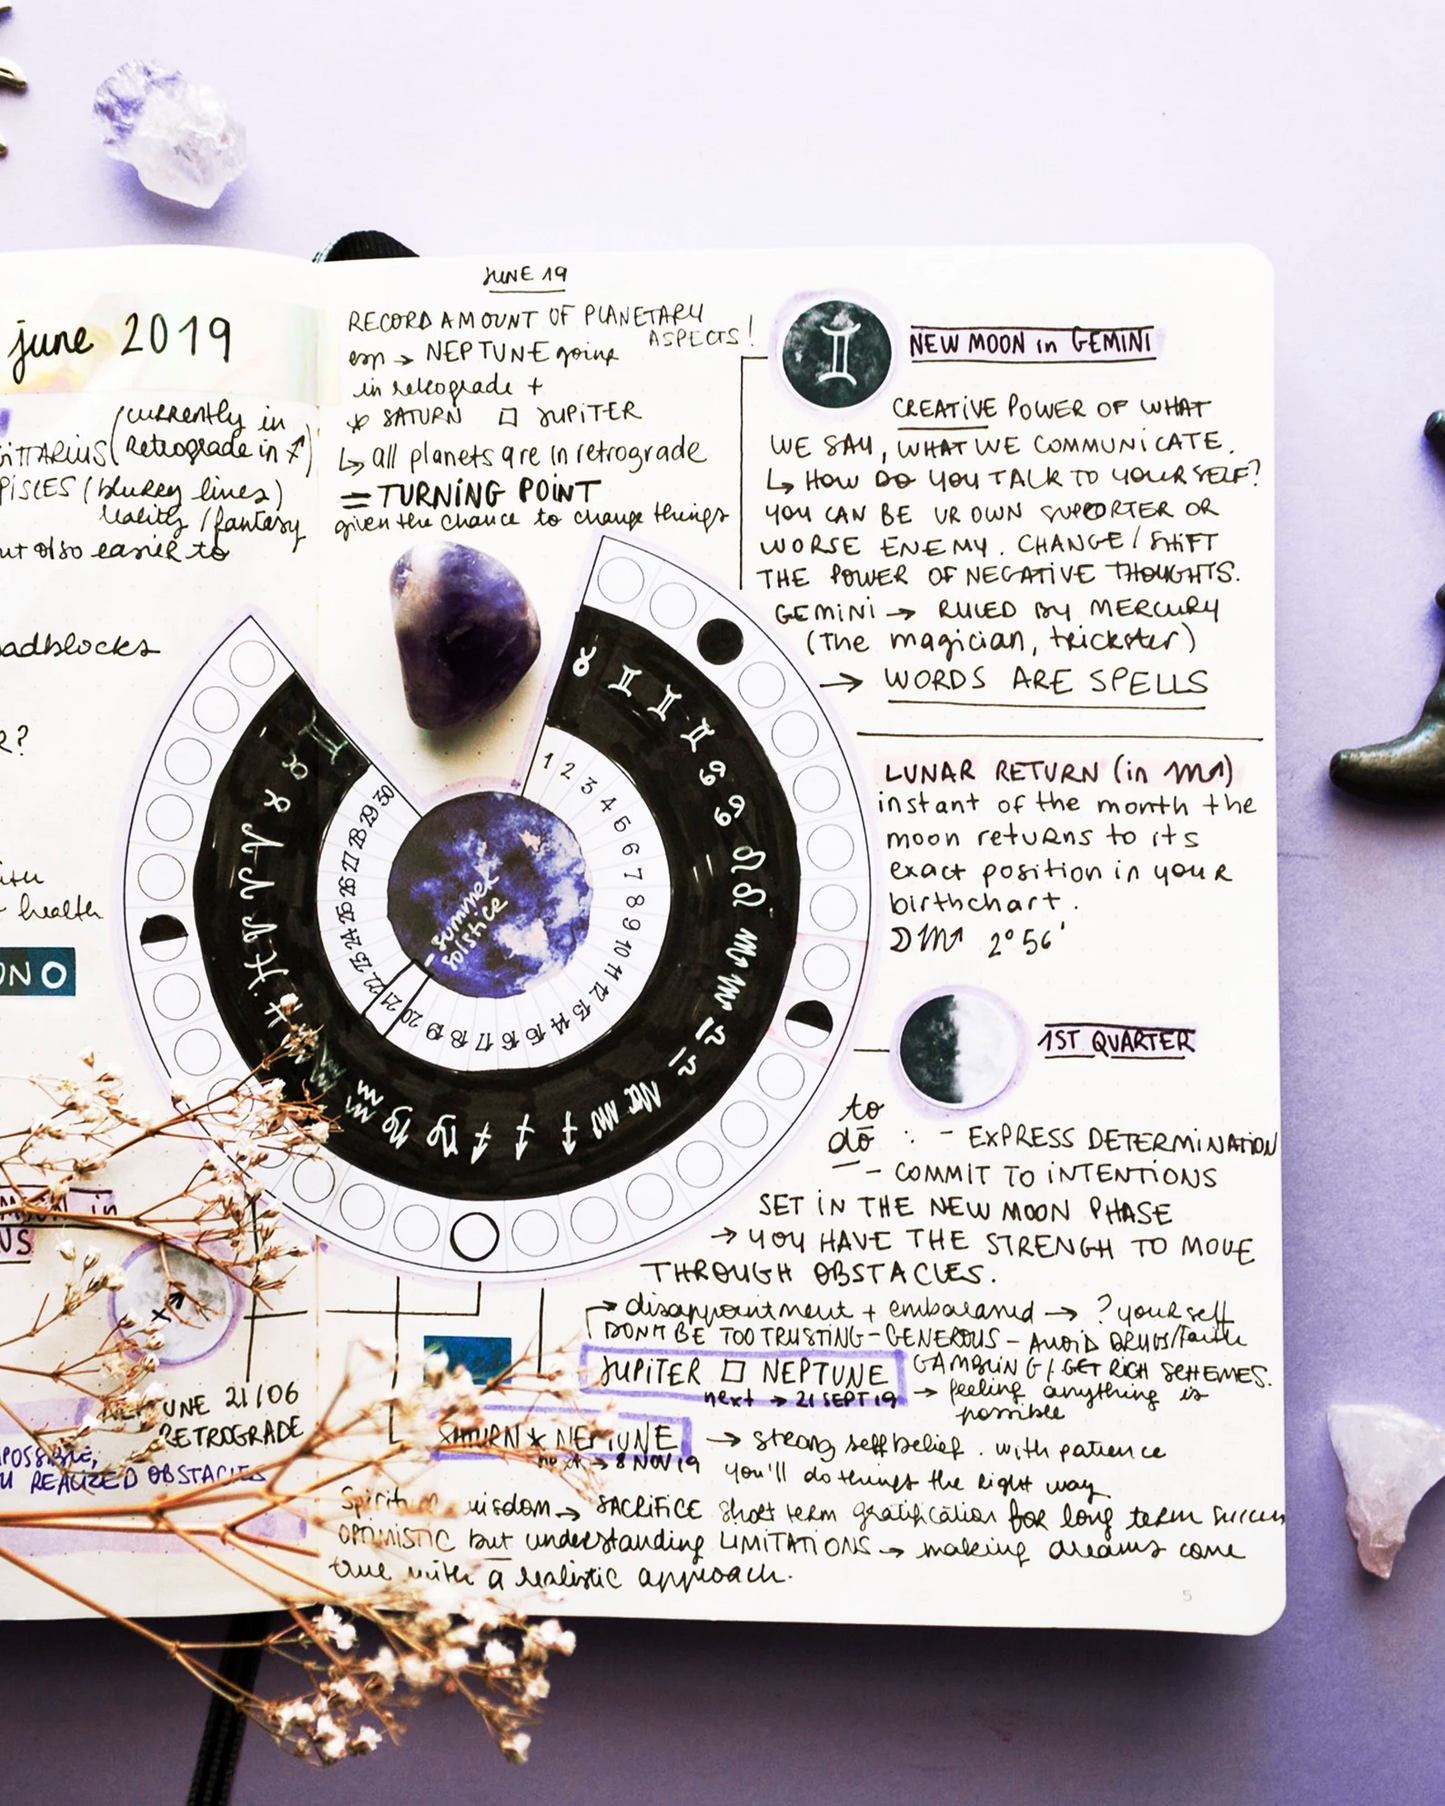 june 2019
(currently in
Retrograde in ♐)
PISCES (blurry lines)
reality / fantasy
but also easier to
roadblocks
R?
health
JUNE 19
RECORD AMOUNT OF PLANETARY
ASPECTS!
esp → NEPTUNE going
in retrograde +
⚹ SATURN □ JUPITER
↳ all planets are in retrograde
= TURNING POINT
given the chance to change things
NEW MOON in GEMINI
CREATIVE POWER OF WHAT
WE SAY, WHAT WE COMMUNICATE.
↳ HOW DO YOU TALK TO YOURSELF?
YOU CAN BE UR OWN SUPPORTER OR
WORSE ENEMY. CHANGE/SHIFT
THE POWER OF NEGATIVE THOUGHTS.
GEMINI → RULED BY MERCURY
(The magician, trickster)
→ WORDS ARE SPELLS
♉ ♊ ♊ ♊ ♋ ♋ ♌ ♌ ♍ ♍ ♍ ♎ ♎ ♏ ♏ ♐ ♐ ♐ ♑ ♑
1 2 3 4 5 6 7 8 9 10 11 12 13 14 15 16 17 18 19 20 21 22 23 24 25 26 27 28 29 30
summer
solstice
LUNAR RETURN (in ♏)
instant of the month the
moon returns to its
exact position in your
birthchart.
☽ ♏ 2°56'
1ST QUARTER
to
do : - EXPRESS DETERMINATION
- COMMIT TO INTENTIONS
SET IN THE NEW MOON PHASE
→ YOU HAVE THE STRENGH TO MOVE
THROUGH OBSTACLES.
→ disappointment + → ? yourself
DON'T BE TOO TRUSTING - GENEROUS - AVOID DRUGS/
JUPITER □ NEPTUNE
GAMBLING / GET RICH SCHEMES.
next → 21 SEPT 19
→ feeling anything is
possible
SATURN ⚹ NEPTUNE
next → 8 NOV 19
→ strong self belief. with patience
you'll do things the right way
wisdom → SACRIFICE short term gratification for long term success
OPTIMISTIC but understanding LIMITATIONS → making dreams come
true with a realistic approach.
NEPTUNE 21/06
RETROGRADE
REALIZED OBSTACLES
5